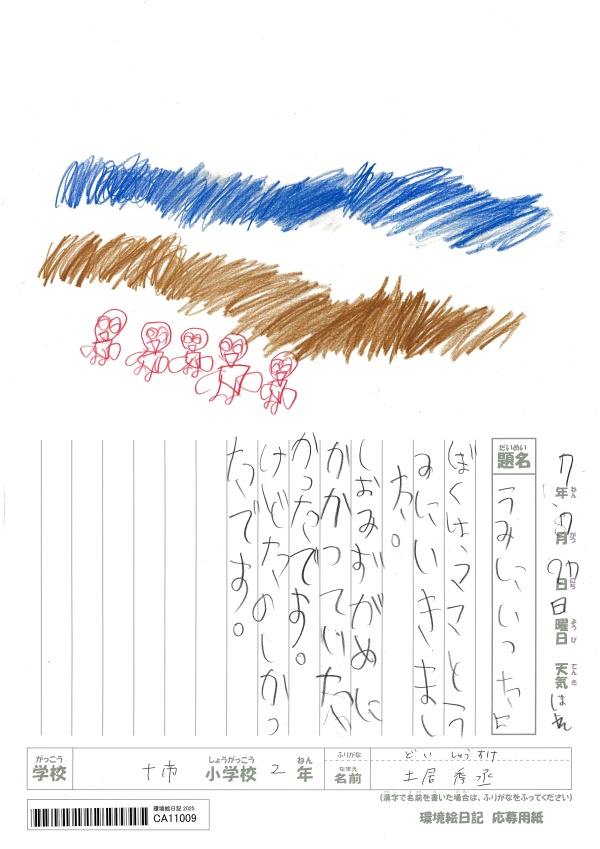 7年7月27日日曜日 天気はれ
ねん がつ にち ようび てんき
だいめい
題名
うみにいった日
ぼくは、ママとう
みにいきまし
た。
しおみずがめに
かかっていた
かったです。
けどたのしかっ
たです。
がっこう
学校
十市
しょうがっこう
小学校
2
ねん
年
ふりがな
どい しゅうすけ
なまえ
名前
土居 秀丞
(漢字で名前を書いた場合は、ふりがなをふってください)
環境絵日記 2025
CA11009
環境絵日記 応募用紙